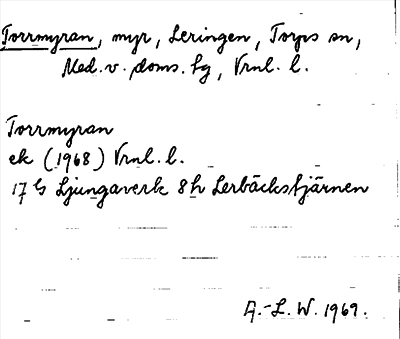 Torrmyran, myr, Leringen, Torps sn,
Med. v. doms. hg, Vrnl. l.
Torrmyran
ek (1968) Vrnl. l.
17 G Ljungaverk 8h Lerbäckstjärnen
A.-L. W. 1969.